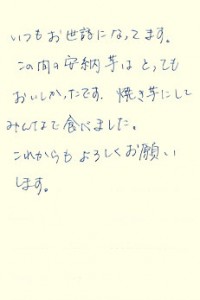 いつもお世話になってます。
この間の安納芋はとっても
おいしかったです。焼き芋にして
みんなで食べました。
これからもよろしくお願い
します。